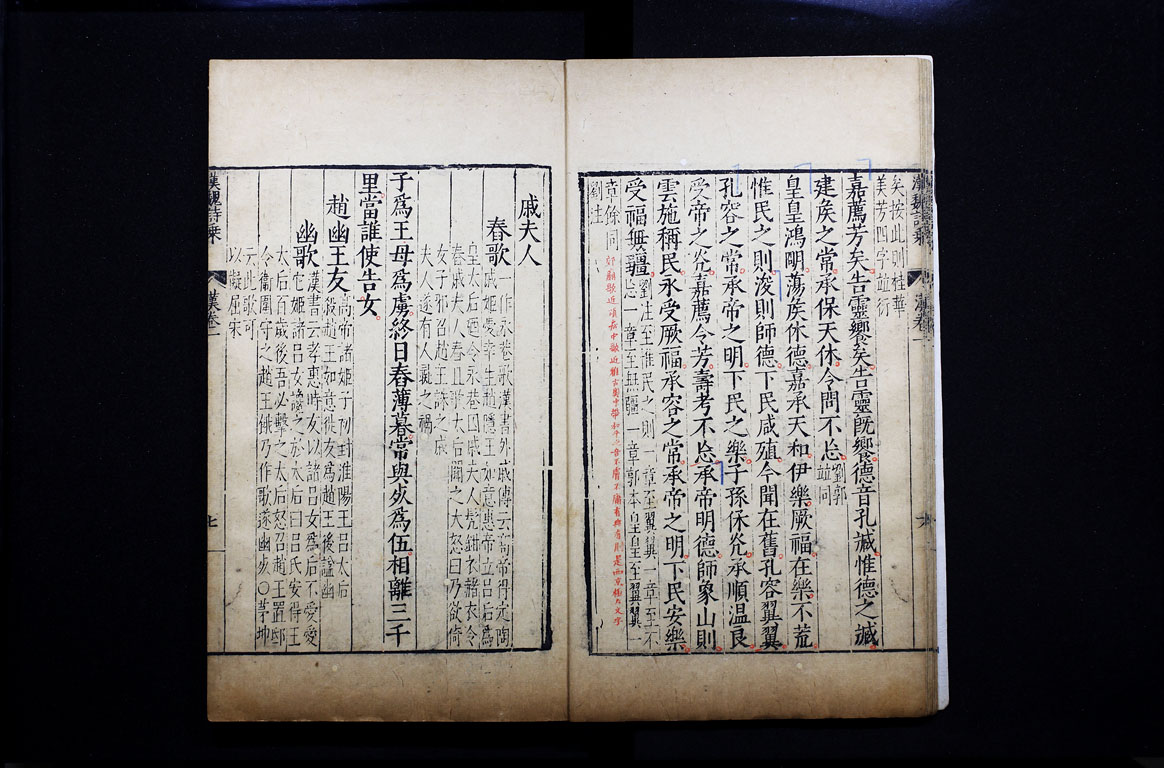 矣按此則桂華
美芳四字竝衍
嘉薦芳矣告靈饗矣告靈既饗德音孔臧惟德之臧
建矦之常承保天休令問不忘劉郭
竝同
皇皇鴻明蕩矦休德嘉承天和伊樂厥福在樂不荒
惟民之則浚則師德下民咸殖令聞在舊孔容翼翼
孔容之常承帝之明下民之樂子孫保光承順温良
受帝之光嘉薦令芳壽考不忘承帝明德師象山則
雲施稱民永受厥福承容之常承帝之明下民安樂
受福無疆劉注至惟民之則一章至翼翼一章至不
忘一章至無疆一章郭本皇皇至翼翼一
章餘同
劉注
漢卷一
六
戚夫人
舂歌一作永巷歌漢書外戚傳云高帝得定陶
戚姬愛幸生趙隱王如意惠帝立呂后為
皇太后廼令永巷囚戚夫人髡鉗衣赭衣令
舂戚夫人舂且歌太后聞之大怒曰乃欲倚
女子邪召趙王誅之戚
夫人遂有人彘之禍
子為王母為虜終日舂薄暮常與死為伍相離三千
里當誰使告女
趙幽王友高帝諸姬子初封淮陽王呂太后
殺趙王如意徙友為趙王後謚幽
幽歌漢書云孝惠時友以諸呂女為后不愛愛
佗姬諸呂女讒之於太后曰呂氏安得王
太后百歲後吾必擊之太后怒召趙王置邸
令衛圍守之趙王餓乃作歌遂幽死〇茅坤
云此歌可
以擬屈宋
漢魏詩乘
漢卷一
七